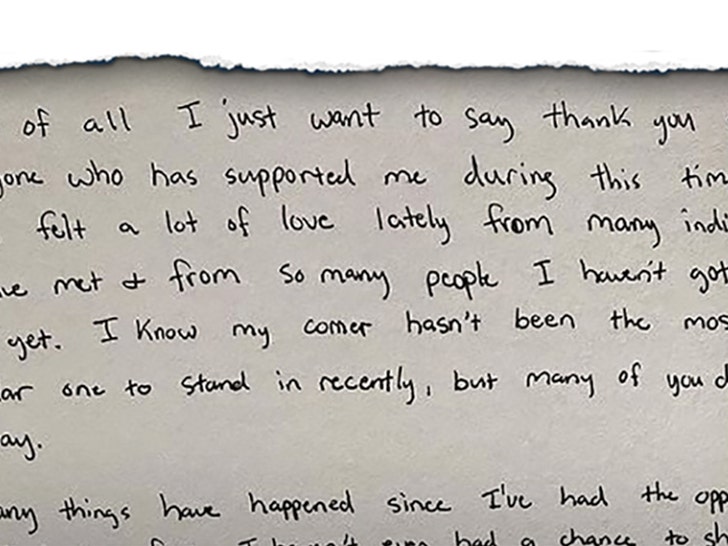 of all I just want to say thank you
who has supported me during this
felt a lot of love lately from many
met & from so many people I haven't got
yet. I know my corner hasn't been the
one to stand in recently, but many of you
things have happened since I've had the
had a chance to